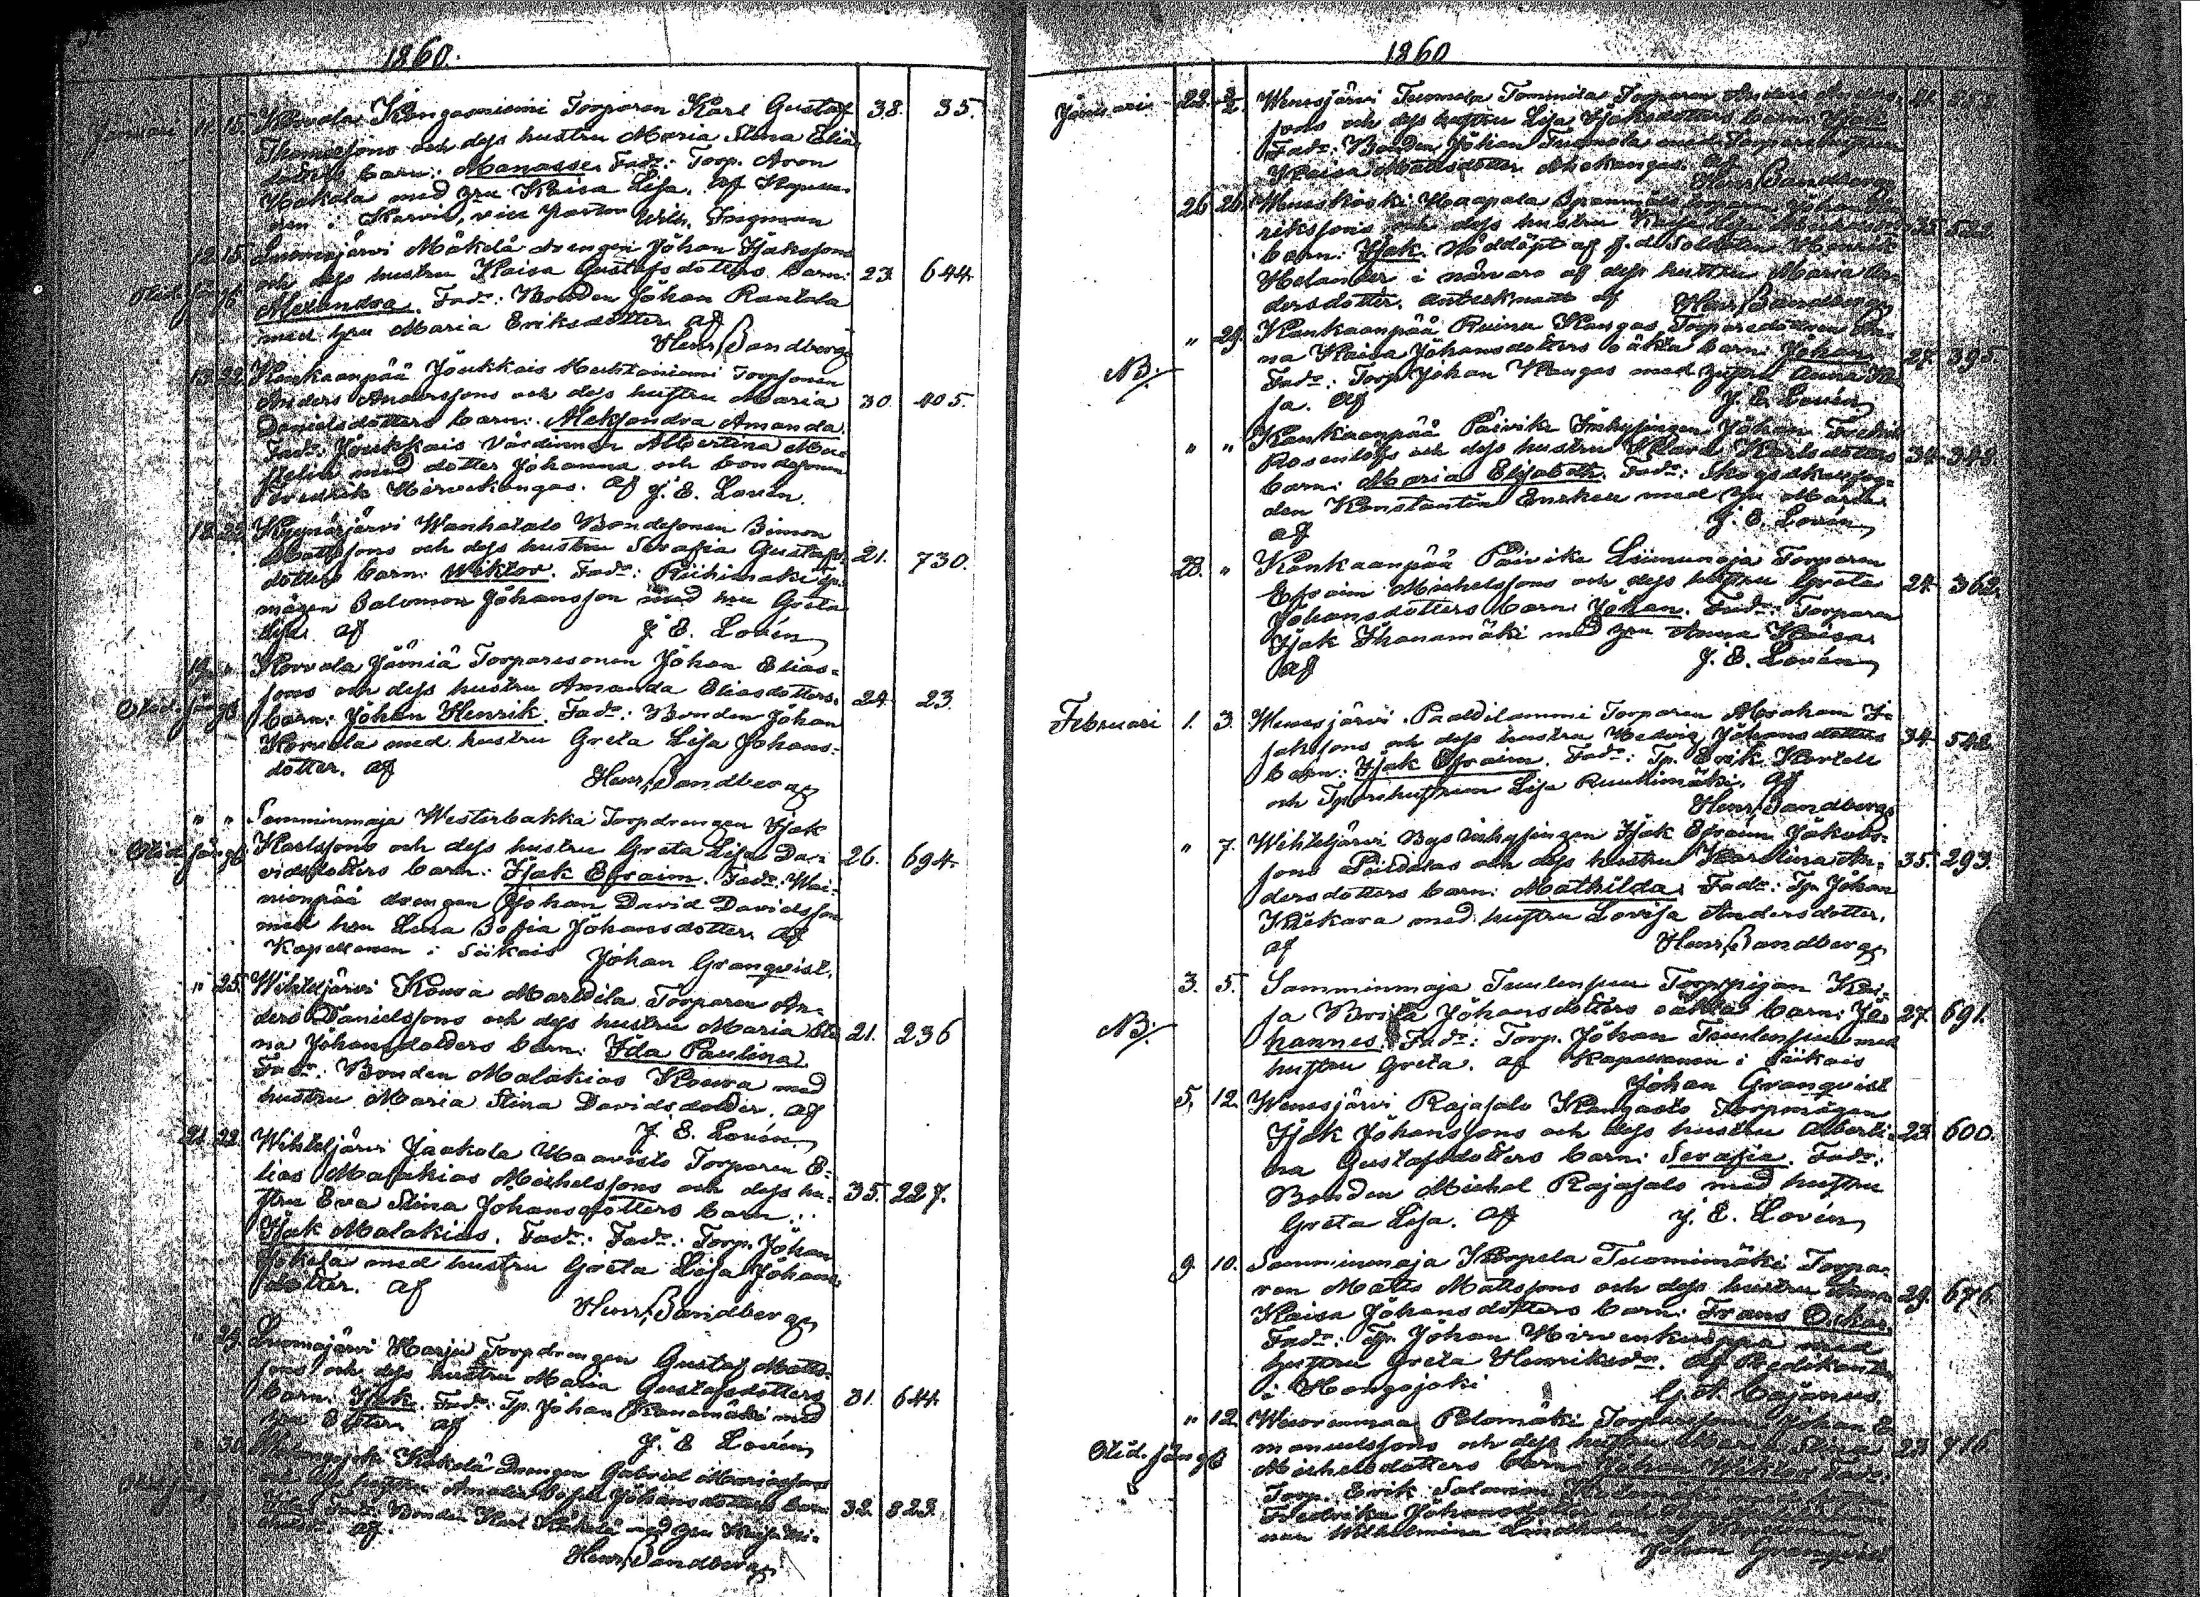 1860.
Januari 11. 15. Korvola Kangasniemi Torparen Karl Gustaf 38. 35.
Thomassons och dess hustru Maria Stina Elias
dotters barn: Manasse. Fadr: Torp. Aron
Hakala med hru Kaisa Lisa. af Kapella-
nen i Karvia, vice Pastor Wilh. Ingman
12 15. Luomajärvi Mäkelä drengen Johan Isakssons
och dess hustru Kaisa Gustafsdotters barn: 23. 644.
Alexandra. Fadr: Bonden Johan Rantala
med hru Maria Eriksdotter. af
Henr. Sandberg
13. 22. Kankaanpää Joukkais Torpsonen
Anders Anderssons och dess hustru Maria 30. 405.
Danielsdotters barn: Aleksandra Amanda.
Fadr: Joukkais Värdinnan Albertina Mu-
stelin med dotter Johanna och bondesonen
Fredrik Hirvikangas. af J. E. Lovén.
18. 22. Kyynärjärvi Wanhatalo Bondesonen Simon
Mattssons och dess hustru Serafia Gustafs- 21. 730.
dotters barn: Wiktor. Fadr: Riihimäki Tp.
mågen Salomon Johansson med hru Greta
Lisa. af J. E. Lovén
19. " Korvola Jämiä Torparesonen Johan Elias-
sons och dess hustru Amanda Eliasdotters 24. 23.
barn: Johan Henrik. Fadr: Bonden Johan
Korvola med hustru Greta Lisa Johans-
dotter. af
Henr. Sandberg
" " Samminmaja Westerbakka Torpdrengen Isak
Karlssons och dess hustru Greta Lisa Da- 26. 694.
vidsdotters barn: Isak Efraim. Fadr: Wai-
nionpää drengen Johan David Davidsson
med hru Lena Sofia Johansdotter. af
Kapellanen i Siikais Johan Granqvist.
" 25. Wihteljärvi Kouva Marttila Torparen An-
ders Danielssons och dess hustru Maria Sti- 21. 236
na Johansdotters barn: Ida Paulina.
Fadr: Bonden Malakias Kouva med
hustru Maria Stina Davidsdotter. af
J. E. Lovén
21. 22. Wihteljärvi Jaakola Haavisto Torparen E-
lias Malakias Michelssons och dess hu- 35. 227.
stru Eva Stina Johansdotters barn:
Isak Malakias. Fadr: Fadr: Torp. Johan
Jokela med hustru Greta Lisa Johans
dotter. af
Henr. Sandberg
" 29. Luomajärvi Harju Torpdrengen Gustaf Matts-
sons och dess hustru Maria Gustafsdotters
barn: Isak. Fadr: Tp. Johan Kanamäki med 31. 644.
hru Ester. af
J. E. Lovén
" 30. Käkelä drengen Gabriel
och dess hustru Amalia Sofia Johansdotters barn 32. 823.
Fadr: Bonden Karl Käkelä med hru Kaisa
af
Henr. Sandberg
1860
Januari 22. Wenesjärvi Tuomela Tommila Torparen Anders Anders-
sons och dess hustru Lisa Isaksdotters barn: Isak
Fadr: Bonden Johan Tuomola med Torparehustrun
Kaisa Mattsdotter af
Henr. Sandberg
26 26. Weneskoski Haapala
rikssons och dess hustru Lisa 35. 523.
barn: Isak. Nöddöpt af f.d. Soldaten Henrik
Helander i närvaro af dess hustru Maria An-
dersdotter. antecknadt af Henr. Sandberg
" 29. Kankaanpää Ruina Kangas Torparedottren An-
NB. na Kaisa Johansdotters oäkta barn: Johan 27. 395
Fadr: Torp. Johan Kangas med hustru Anna Kai-
sa. af J. E. Lovén
" " Kankaanpää Päivike Inhysingen Johan Fredrik
Rosenlöfs och dess hustru Klara Karlsdotters 34. 348.
barn: Maria Elisabeth. Fadr:
den Konstantin med hru Maria
af J. E. Lovén
28. " Kankaanpää Päivike Liimunoja Torparen
Efraim Michelssons och dess hustru Greta 24. 362.
Johansdotters barn: Johan. Fadr: Torparen
Isak Ihanamäki med hru Anna Kaisa.
af J. E. Lovén
Februari 1. 3. Wenesjärvi Paaldilammi Torparen Abraham I-
sakssons och dess hustru Hedvig Johansdotters 34. 542.
barn: Isak Efraim. Fadr: Tp. Erik
och Tparehustrun Lisa Ruuhimäki. af
Henr. Sandberg
" 7. Wihteljärvi Bys inhysingen Isak Efraim Jakobs-
sons och dess hustru Karolina An- 35. 293.
dersdotters barn: Mathilda. Fadr: Tp. Johan
Kiekara med hustru Lovisa Andersdotter.
af Henr. Sandberg
3. 5. Samminmaja Tuulensuu Torppigan Kai-
NB. sa Brita Johansdotters oäkta barn: Jo- 27. 691.
hannes. Fadr: Torp. Johan Tuulensuu med
hustru Greta. af Kapellanen i Siikais
Johan Granqvist
5. 12. Wenesjärvi Rajasalo Kangasto Torpmågen
Isak Johanssons och dess hustru Alberti- 23. 600.
na Gustafsdotters barn: Serafia. Fadr:
Bonden Michel Rajasalo med hustru
Greta Lisa. af J. E. Lovén
9. 10. Samminmaja Kropela Tuomimäki Torpa-
ren Matts Mattssons och dess hustru Anna 29. 676.
Kaisa Johansdotters barn: Frans Oskar.
Fadr: Tp. Johan Hirvenkuoppa med
hustru Greta Henriksdr. af Predikanten
i Hongojoki G. A. Cajanus.
" 12. Wuorenmaa Palomäki Torparesonen Johan E-
manuelssons och dess hustru Maria Stina 23. 716
Michelsdotters barn: Johan Wiktor. Fadr:
Torp. Erik Salomon
Fredrika Johansdotter
nan Wilhelmina Lindholm. af Kapellanen
Johan Granqvist